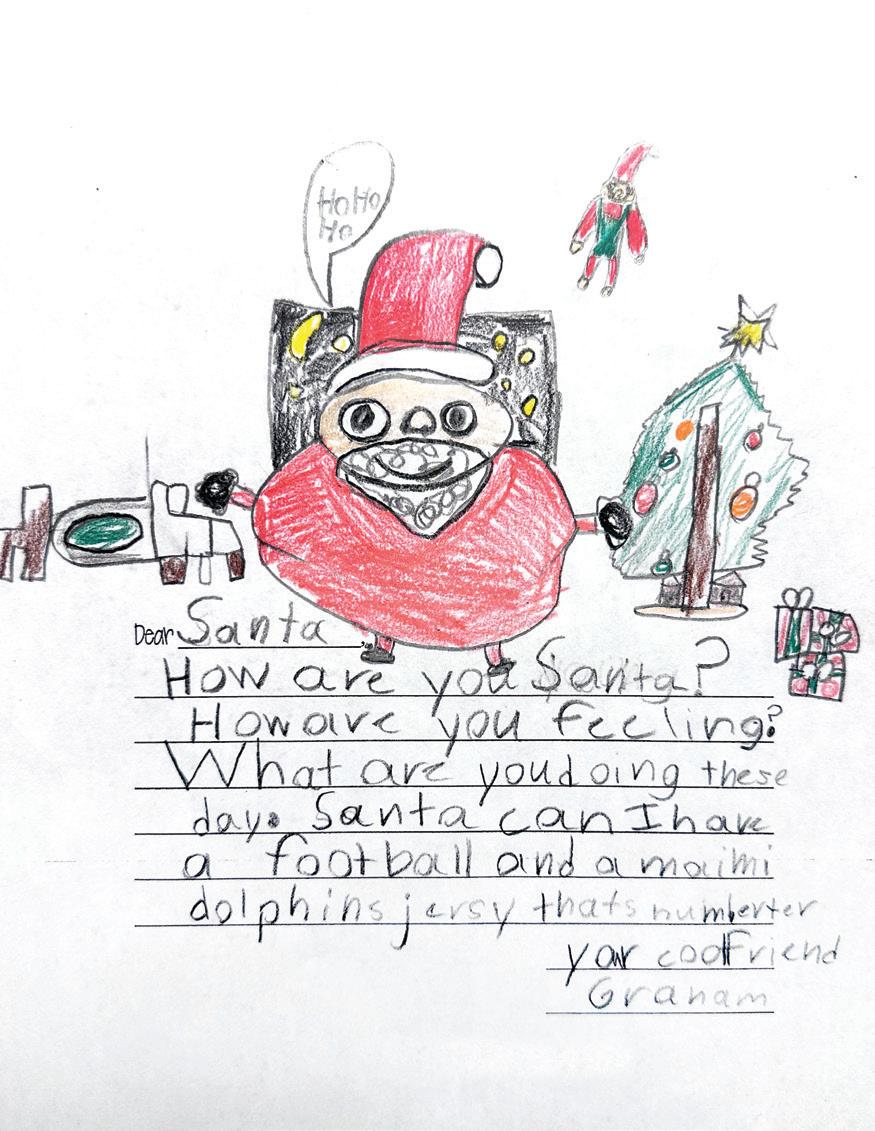 HoHo
Ho
Dear Santa,
How are you Santa?
How are you feeling?
What are you doing these
day. Santa can I have
a football and a maimi
dolphins jersy thats numberter
your cool friend
Granam